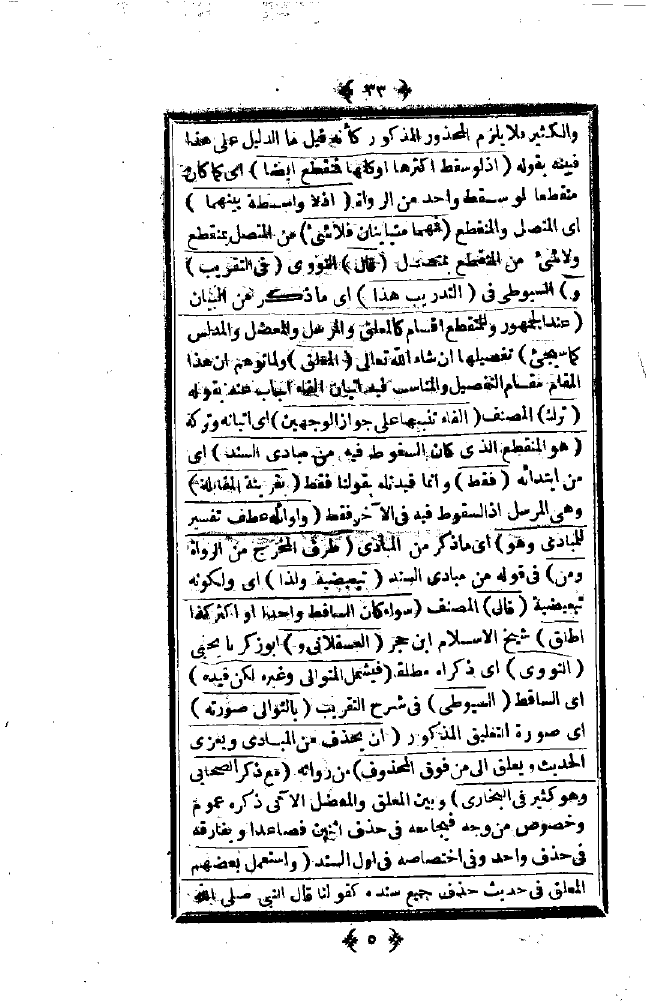 ﴿ ٣٣ ﴾
والكثير ولا يلزم المحذور المذكور كأنه قيل ما الدليل على هذا
فبينه بقوله ( اذ لو سقط اكثرها او كلها فمنقطع ايضا ) اى كما كان
منقطعا لو سقط واحد من الرواة ( اذ لا واسطة بينهما )
اى المتصل والمنقطع ( فهما متباينان فلا شئ ) من المتصل بمنقطع
ولا شئ من المنقطع بمتصل ( قال ) النووى ( فى التقريب )
( و ) السيوطى فى ( التدريب هذا ) اى ما ذكر من البيان
( عند الجمهور وللمنقطع اقسام كالمعلق والمرسل والمعضل والمدلس
كما سيجئ ) تفصيلها ان شاء الله تعالى ( المعلق ) ولما توهم ان هذا
المقام مقام التفصيل والمناسب فيه اتيان الفاء اجاب عنه بقوله
( ترك ) المصنف ( الفاء تنبيها على جواز الوجهين ) اى اتيانه وتركه
( هو المنقطع الذى كان السقوط فيه من مبادى السند ) اى
من ابتدائه ( فقط ) وانما قيدته بقولنا فقط ( بقرينة المقابلة )
وهى المرسل اذ السقوط فيه فى الآخر فقط ( واوائله عطف تفسير
للمبادى وهو ) اى ما ذكر من المبادى ( طرف المخرج من الرواة
ومن ) فى قوله من مبادى السند ( تبعيضية ولذا ) اى ولكونه
تبعيضية ( قال ) المصنف ( سواء كان الساقط واحدا او اكثر كذا
اطلق ) شيخ الاسلام ابن حجر ( العسقلانى و ) ابو زكريا يحيى
( النووى ) اى ذكراه مطلقا ( فيشمل المتوالى وغيره لكن قيده )
اى الساقط ( السيوطى ) فى شرح التقريب ( بالتوالى صورته )
اى صورة التعليق المذكور ( ان يحذف من المبادى ويعزى
الحديث ويعلق الى من فوق المحذوف ) من رواته ( مع ذكر الصحابى
وهو كثير فى البخارى ) وبين المعلق والمعضل الآتى ذكره عموم
وخصوص من وجه فيجامعه فى حذف اثنين فصاعدا ويفارقه
فى حذف واحد وفى اختصاصه فى اول السند ( واستعمل بعضهم
المعلق فى حديث حذف جميع سنده كقولنا قال النبى صلى الله
﴿ ٥ ﴾